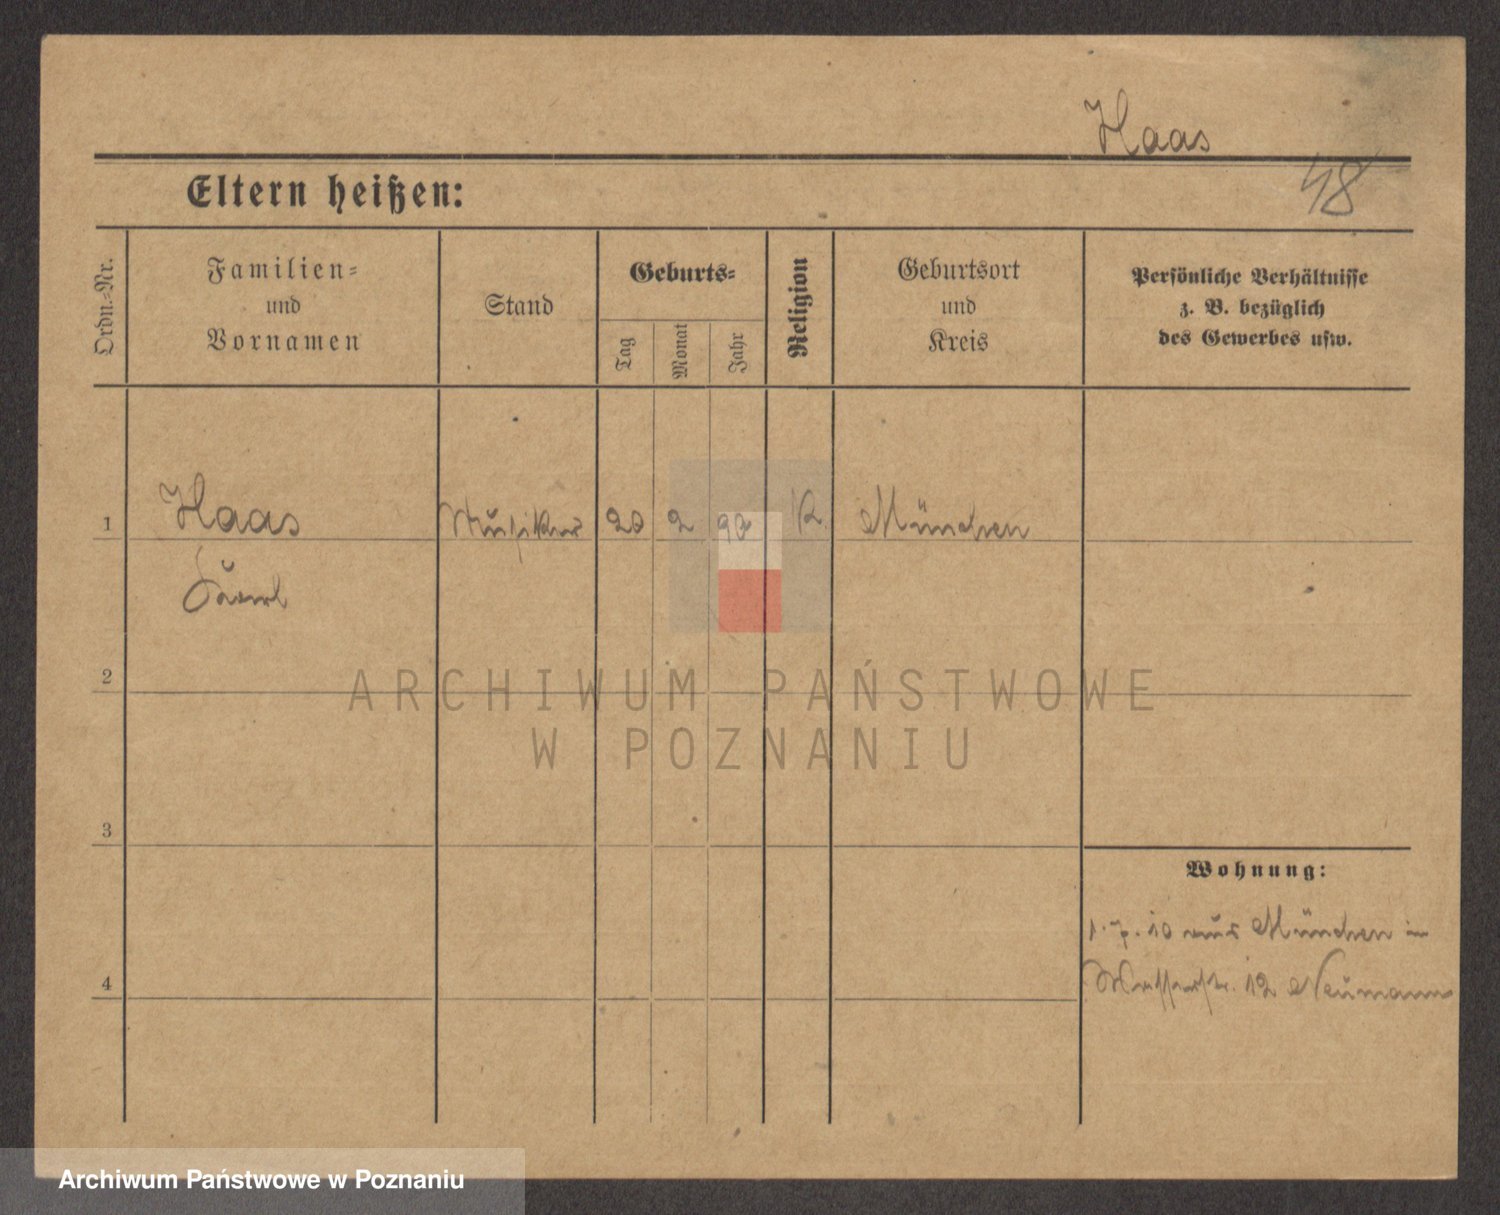 Haas
Eltern heißen:
48
Ordn.=Nr.
Familien=
und
Vornamen
Stand
Geburts=
Tag
Monat
Jahr
Religion
Geburtsort
und
Kreis
Persönliche Verhältnisse
z. B. bezüglich
des Gewerbes usw.
1
Haas
Musiker
20
2
92
K
München
2
3
4
Wohnung:
1.7.10 aus München in
12 Neumann
ARCHIWUM PAŃSTWOWE
W POZNANIU
Archiwum Państwowe w Poznaniu